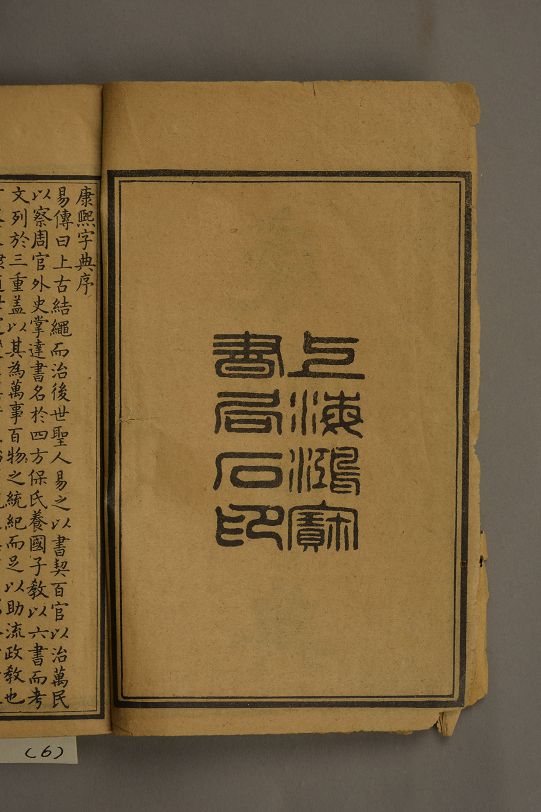 上海鴻寶
書局石印
康熙字典序
易傳曰上古結繩而治後世聖人易之以書契百官以治萬民
以察周官外史掌達書名於四方保氏養國子教以六書而考
文列於三重盖以其為萬事百物之統紀而足以助流政教也
(6)